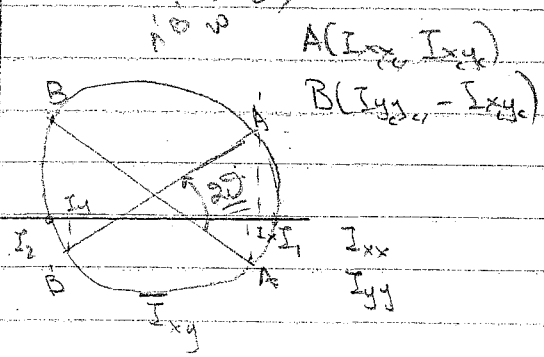 A(Ixcxc, Ixcyc)
B(Iycyc, -Ixcyc)
B
A'
2θ
Iy
Ix
I2
I1
Ixx
B'
A
Iyy
Ixy